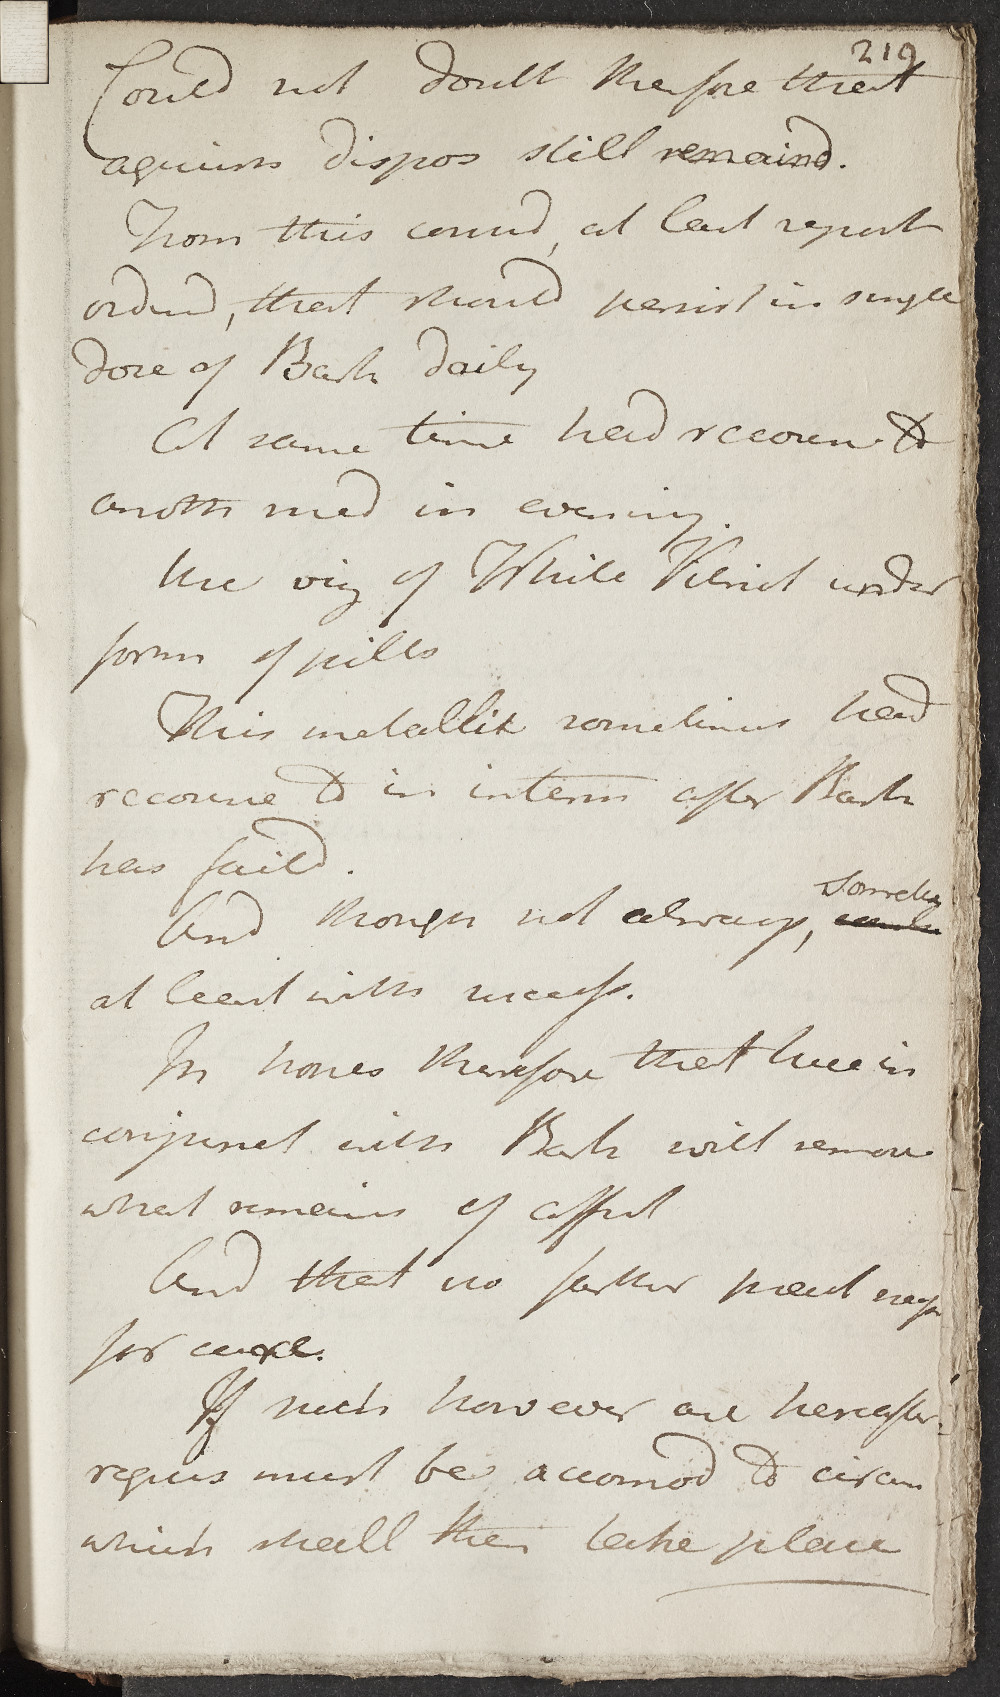 219
Could not doubt therfore that
aguish dispos still remaind.
From this consid, at least report
orderd, that should persist in single
dose of Bark daily
At same time had recourse to
anothr med in evening.
Use viz of White Vitriol under
form of pills
This metallik sometimes had
recourse to in interm after Bark
has faild.
And though not always, sometim
at least with success.
In hopes therefore that these in
conjunct with Bark will remove
what remains of affect
And that no farther pract necessy
for cure.
If such however are hereafter
requis must be accomod to circum
which shall then take place